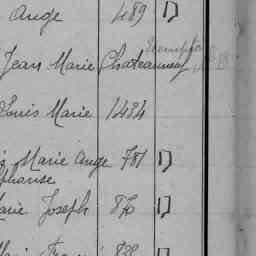 Ange 489 D
Jean Marie Chateauneuf
Louis Marie 1484
Marie Ange 781 D
Alphonse
Marie Joseph 876 D
838 D